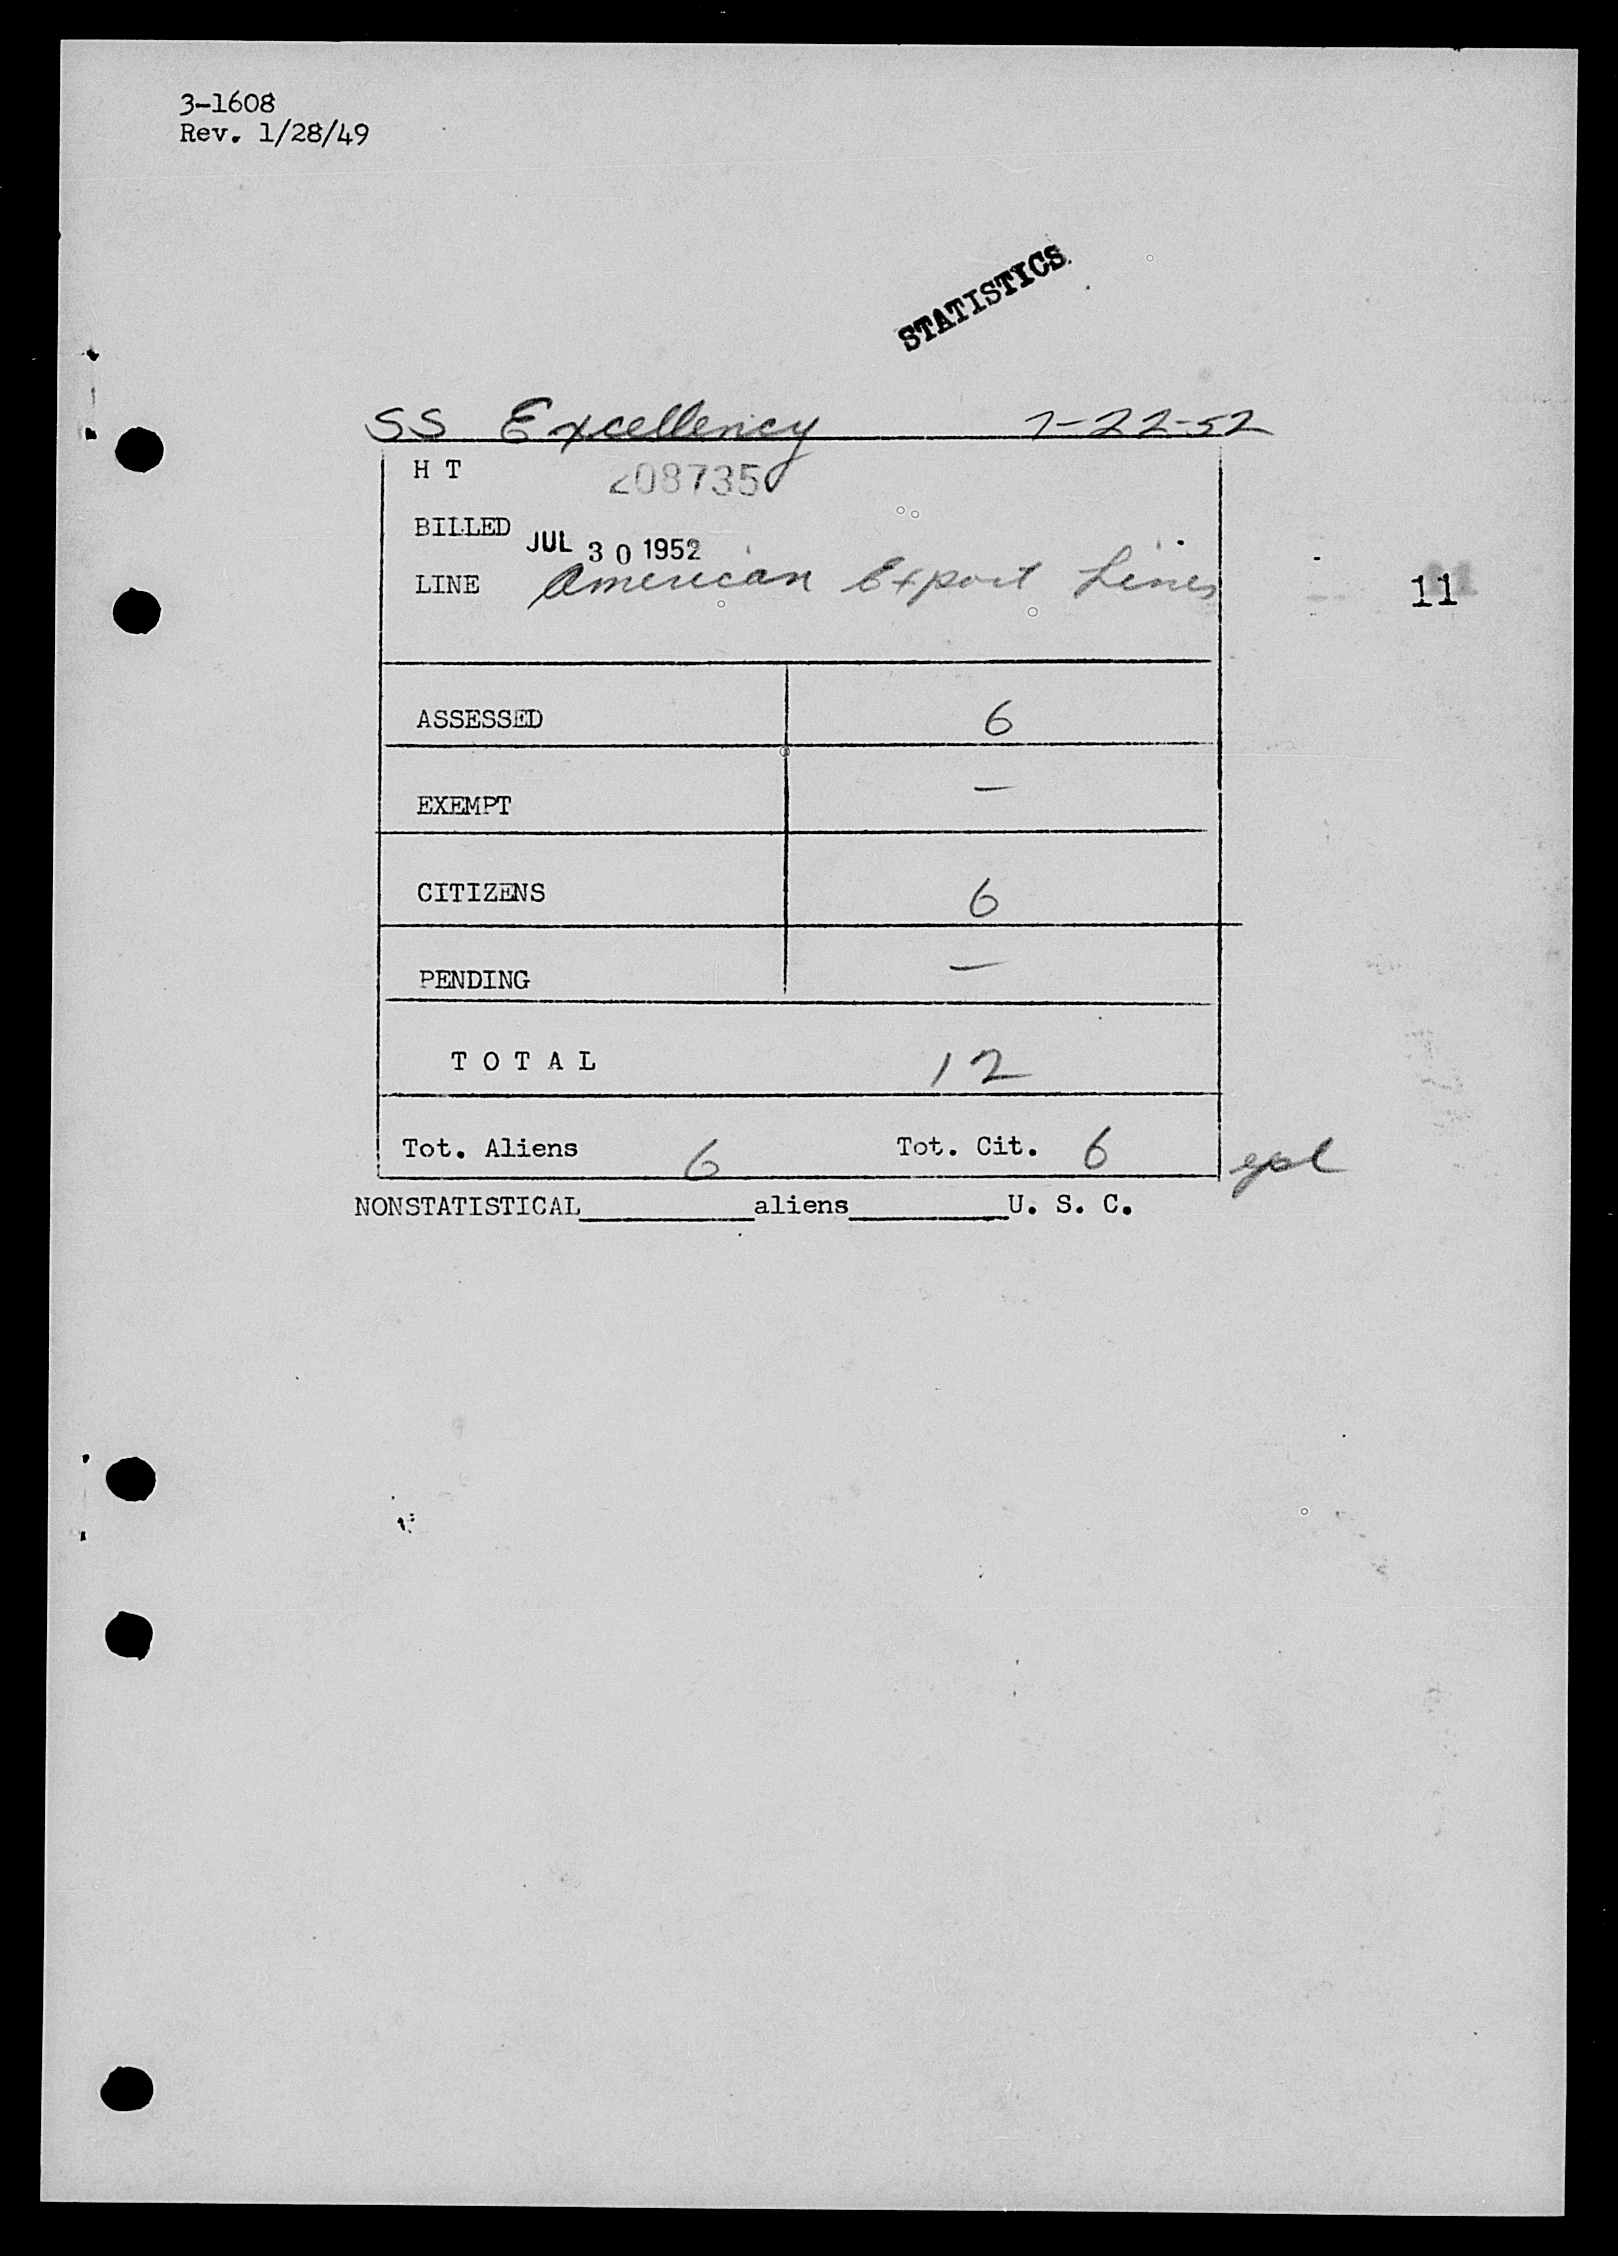 3-1608
Rev. 1/28/49
STATISTICS
SS Excellency 7-22-52
H T 208735
BILLED JUL 30 1952
LINE American Export Lines
11
ASSESSED 6
EXEMPT —
CITIZENS 6
PENDING —
T O T A L 12
Tot. Aliens 6 Tot. Cit. 6
NONSTATISTICAL__________aliens__________U. S. C.